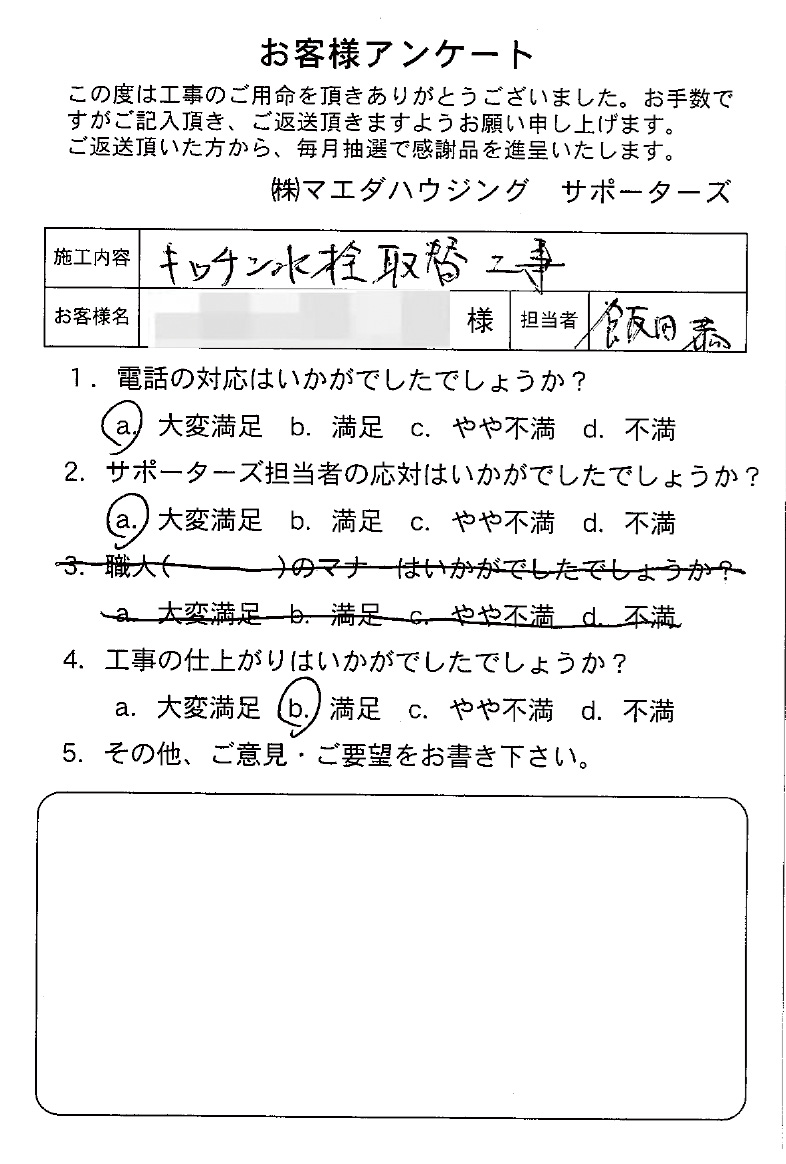 お客様アンケート
この度は工事のご用命を頂きありがとうございました。お手数で
すがご記入頂き、ご返送頂きますようお願い申し上げます。
ご返送頂いた方から、毎月抽選で感謝品を進呈いたします。
㈱マエダハウジング　サポーターズ
施工内容 キッチン水栓取替工事
お客様名 様 担当者 飯田 恭
1. 電話の対応はいかがでしたでしょうか？
a. 大変満足 b. 満足 c. やや不満 d. 不満
2. サポーターズ担当者の応対はいかがでしたでしょうか？
a. 大変満足 b. 満足 c. やや不満 d. 不満
3. 職人(　　　　)のマナーはいかがでしたでしょうか？
a. 大変満足 b. 満足 c. やや不満 d. 不満
4. 工事の仕上がりはいかがでしたでしょうか？
a. 大変満足 b. 満足 c. やや不満 d. 不満
5. その他、ご意見・ご要望をお書き下さい。